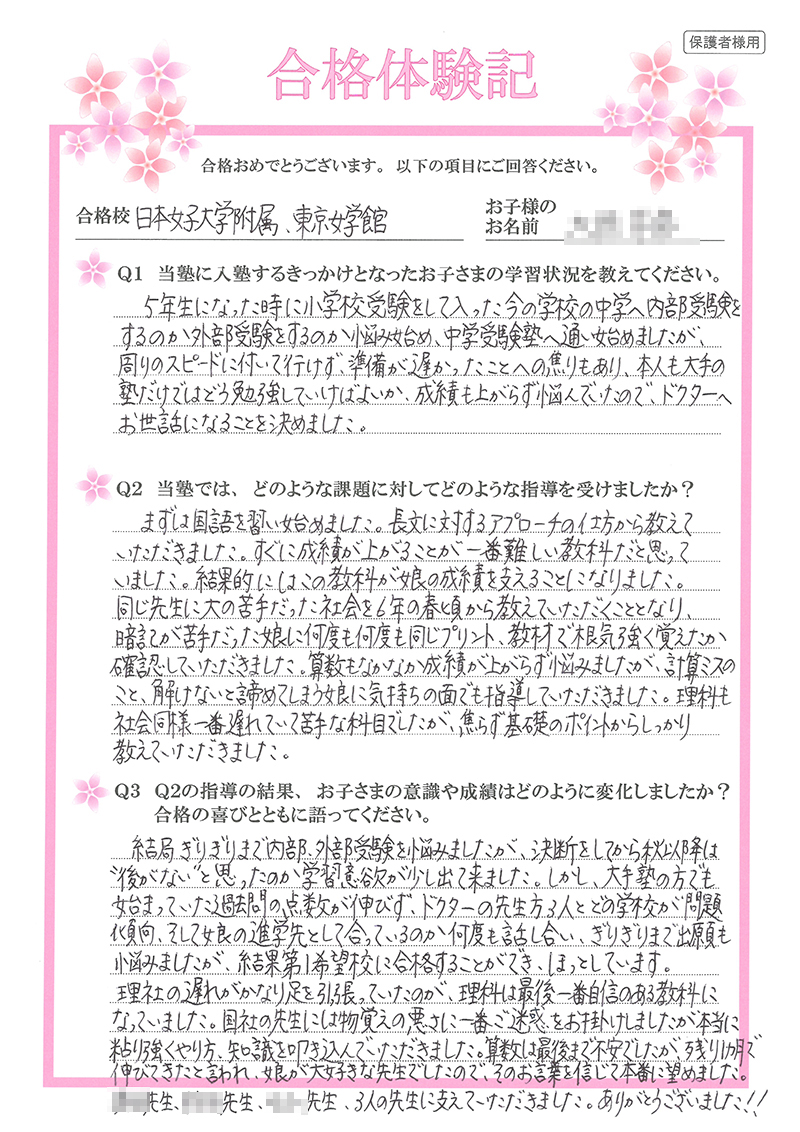 保護者様用
合格体験記
合格おめでとうございます。以下の項目にご回答ください。
合格校 日本女子大学附属、東京女学館
お子様の
お名前
Q1 当塾に入塾するきっかけとなったお子さまの学習状況を教えてください。
5年生になった時に小学校受験をして入った今の学校の中学へ内部受験を
するのか外部受験をするのか悩み始め、中学受験塾へ通い始めましたが、
周りのスピードに付いて行けず、準備が遅かったことへの焦りもあり、本人も大手の
塾だけではどう勉強していけばよいか、成績も上がらず悩んでいたので、ドクターへ
お世話になることを決めました。
Q2 当塾では、どのような課題に対してどのような指導を受けましたか？
まずは国語を習い始めました。長文に対するアプローチの仕方から教えて
いただきました。すぐに成績が上がることが一番難しい教科だと思って
いました。結果的にはこの教科が娘の成績を支えることになりました。
同じ先生に大の苦手だった社会を6年の春頃から教えていただくこととなり、
暗記が苦手だった娘に何度も何度も同じプリント、教材で根気強く覚えたか
確認していただきました。算数もなかなか成績が上がらず悩みましたが、計算ミスの
こと、解けないと諦めてしまう娘に気持ちの面でも指導していただきました。理科も
社会同様一番遅れていて苦手な科目でしたが、焦らず基礎のポイントからしっかり
教えていただきました。
Q3 Q2の指導の結果、お子さまの意識や成績はどのように変化しましたか？
合格の喜びとともに語ってください。
結局ぎりぎりまで内部、外部受験を悩みましたが、決断をしてから秋以降は
"後がない"と思ったのか学習意欲が少し出て来ました。しかし、大手塾の方でも
始まっていた過去問の点数が伸びず、ドクターの先生方3人とどの学校が問題
傾向、そして娘の進学先として合っているのか何度も話し合い、ぎりぎりまで出願も
悩みましたが、結果第1希望校に合格することができ、ほっとしています。
理社の遅れがかなり足を引張っていたのが、理科は最後一番自信のある教科に
なっていました。国社の先生には物覚えの悪さに一番ご迷惑をお掛けしましたが本当に
粘り強くやり方、知識を叩き込んでいただきました。算数は最後まで不安でしたが、残り1ヵ月で
伸びてきたと言われ、娘が大好きな先生でしたので、そのお言葉を信じて本番に望めました。
先生、先生、先生、3人の先生に支えていただきました。ありがとうございました!!